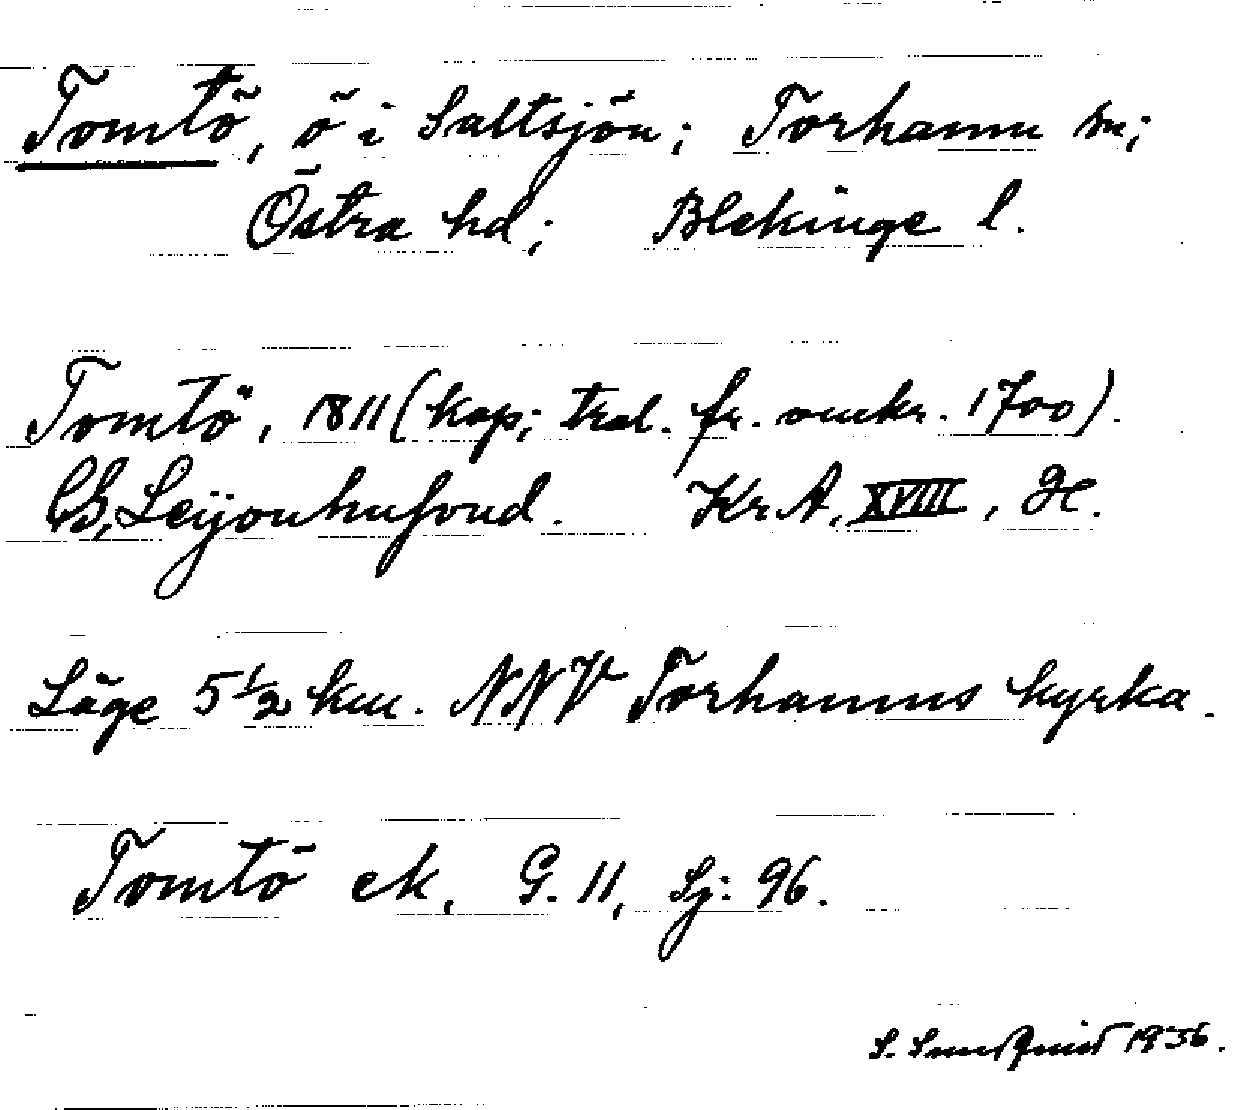 Tomtö, ö i Saltsjön; Torhamn sn;
Östra hd; Blekinge l.
Tomtö, 1811 (kop; tral. fr. omkr. 1700).
CG, Leijonhufvud. Kr.A, XVIII, H.
Läge 5 1/2 km. NNV Torhamns kyrka.
Tomtö ek, G. 11, Sj: 96.
S. Sundquist 1936.